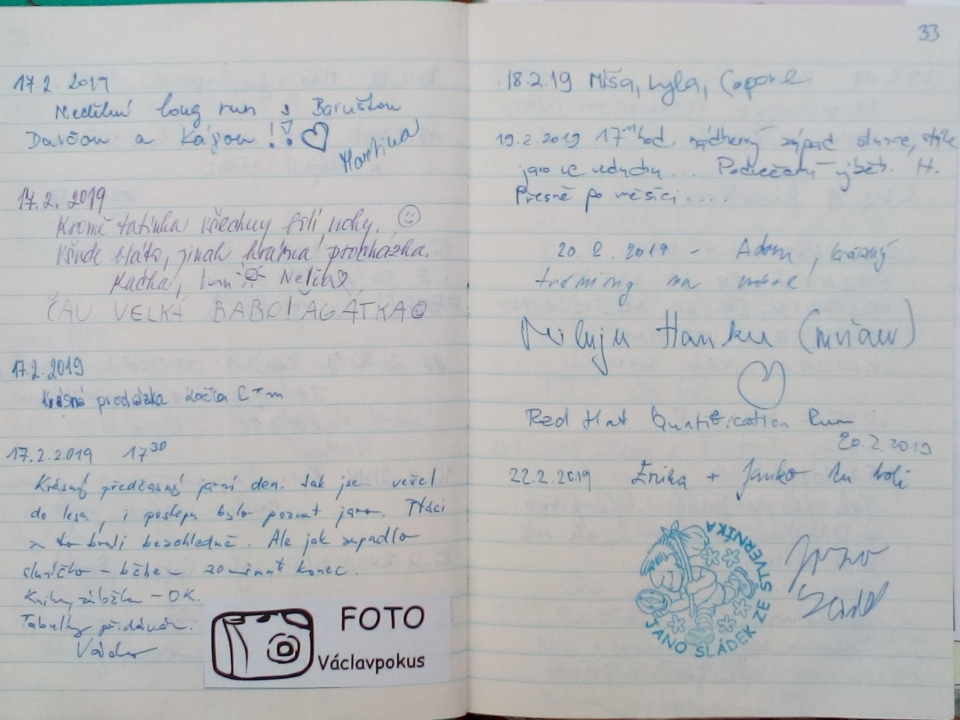 17.2.2019
Nedělní long run s Baruškou
Davčou a Kájou!!
Martina
17.2.2019
Kromě tatínka všechny bolí nohy.
Všude bláto, jinak krásná procházka.
Kačka, Nelinka
ČAU VELKÁ BABO! AGÁTKA
17.2.2019
Krásná procházka
17.2.2019 17³⁰
Krásný předčasný jarní den. Jak jsem vešel
do lesa, i poslepu bylo poznat jaro. Ptáci
to brali bezohledně. Ale jak zapadlo
sluníčko – během 20 minut konec.
Knihy, záložka – OK.
Tabulky přidávám.
FOTO
Václavpokus
33
18.2.19 Míša,
19.2.2019 17 hod. nádherný západ slunce, stále
jaro ve vzduchu... Podvečerní výběh. H.
Přesně po měsíci....
20.2.2019 – Adam, krásný
Miluju Hanku (mňau)
Red Hat Quantification Run
20.2.2019
22.2.2019 Erika + Janko
JANO SLÁDEK ZE STVERNÍKA